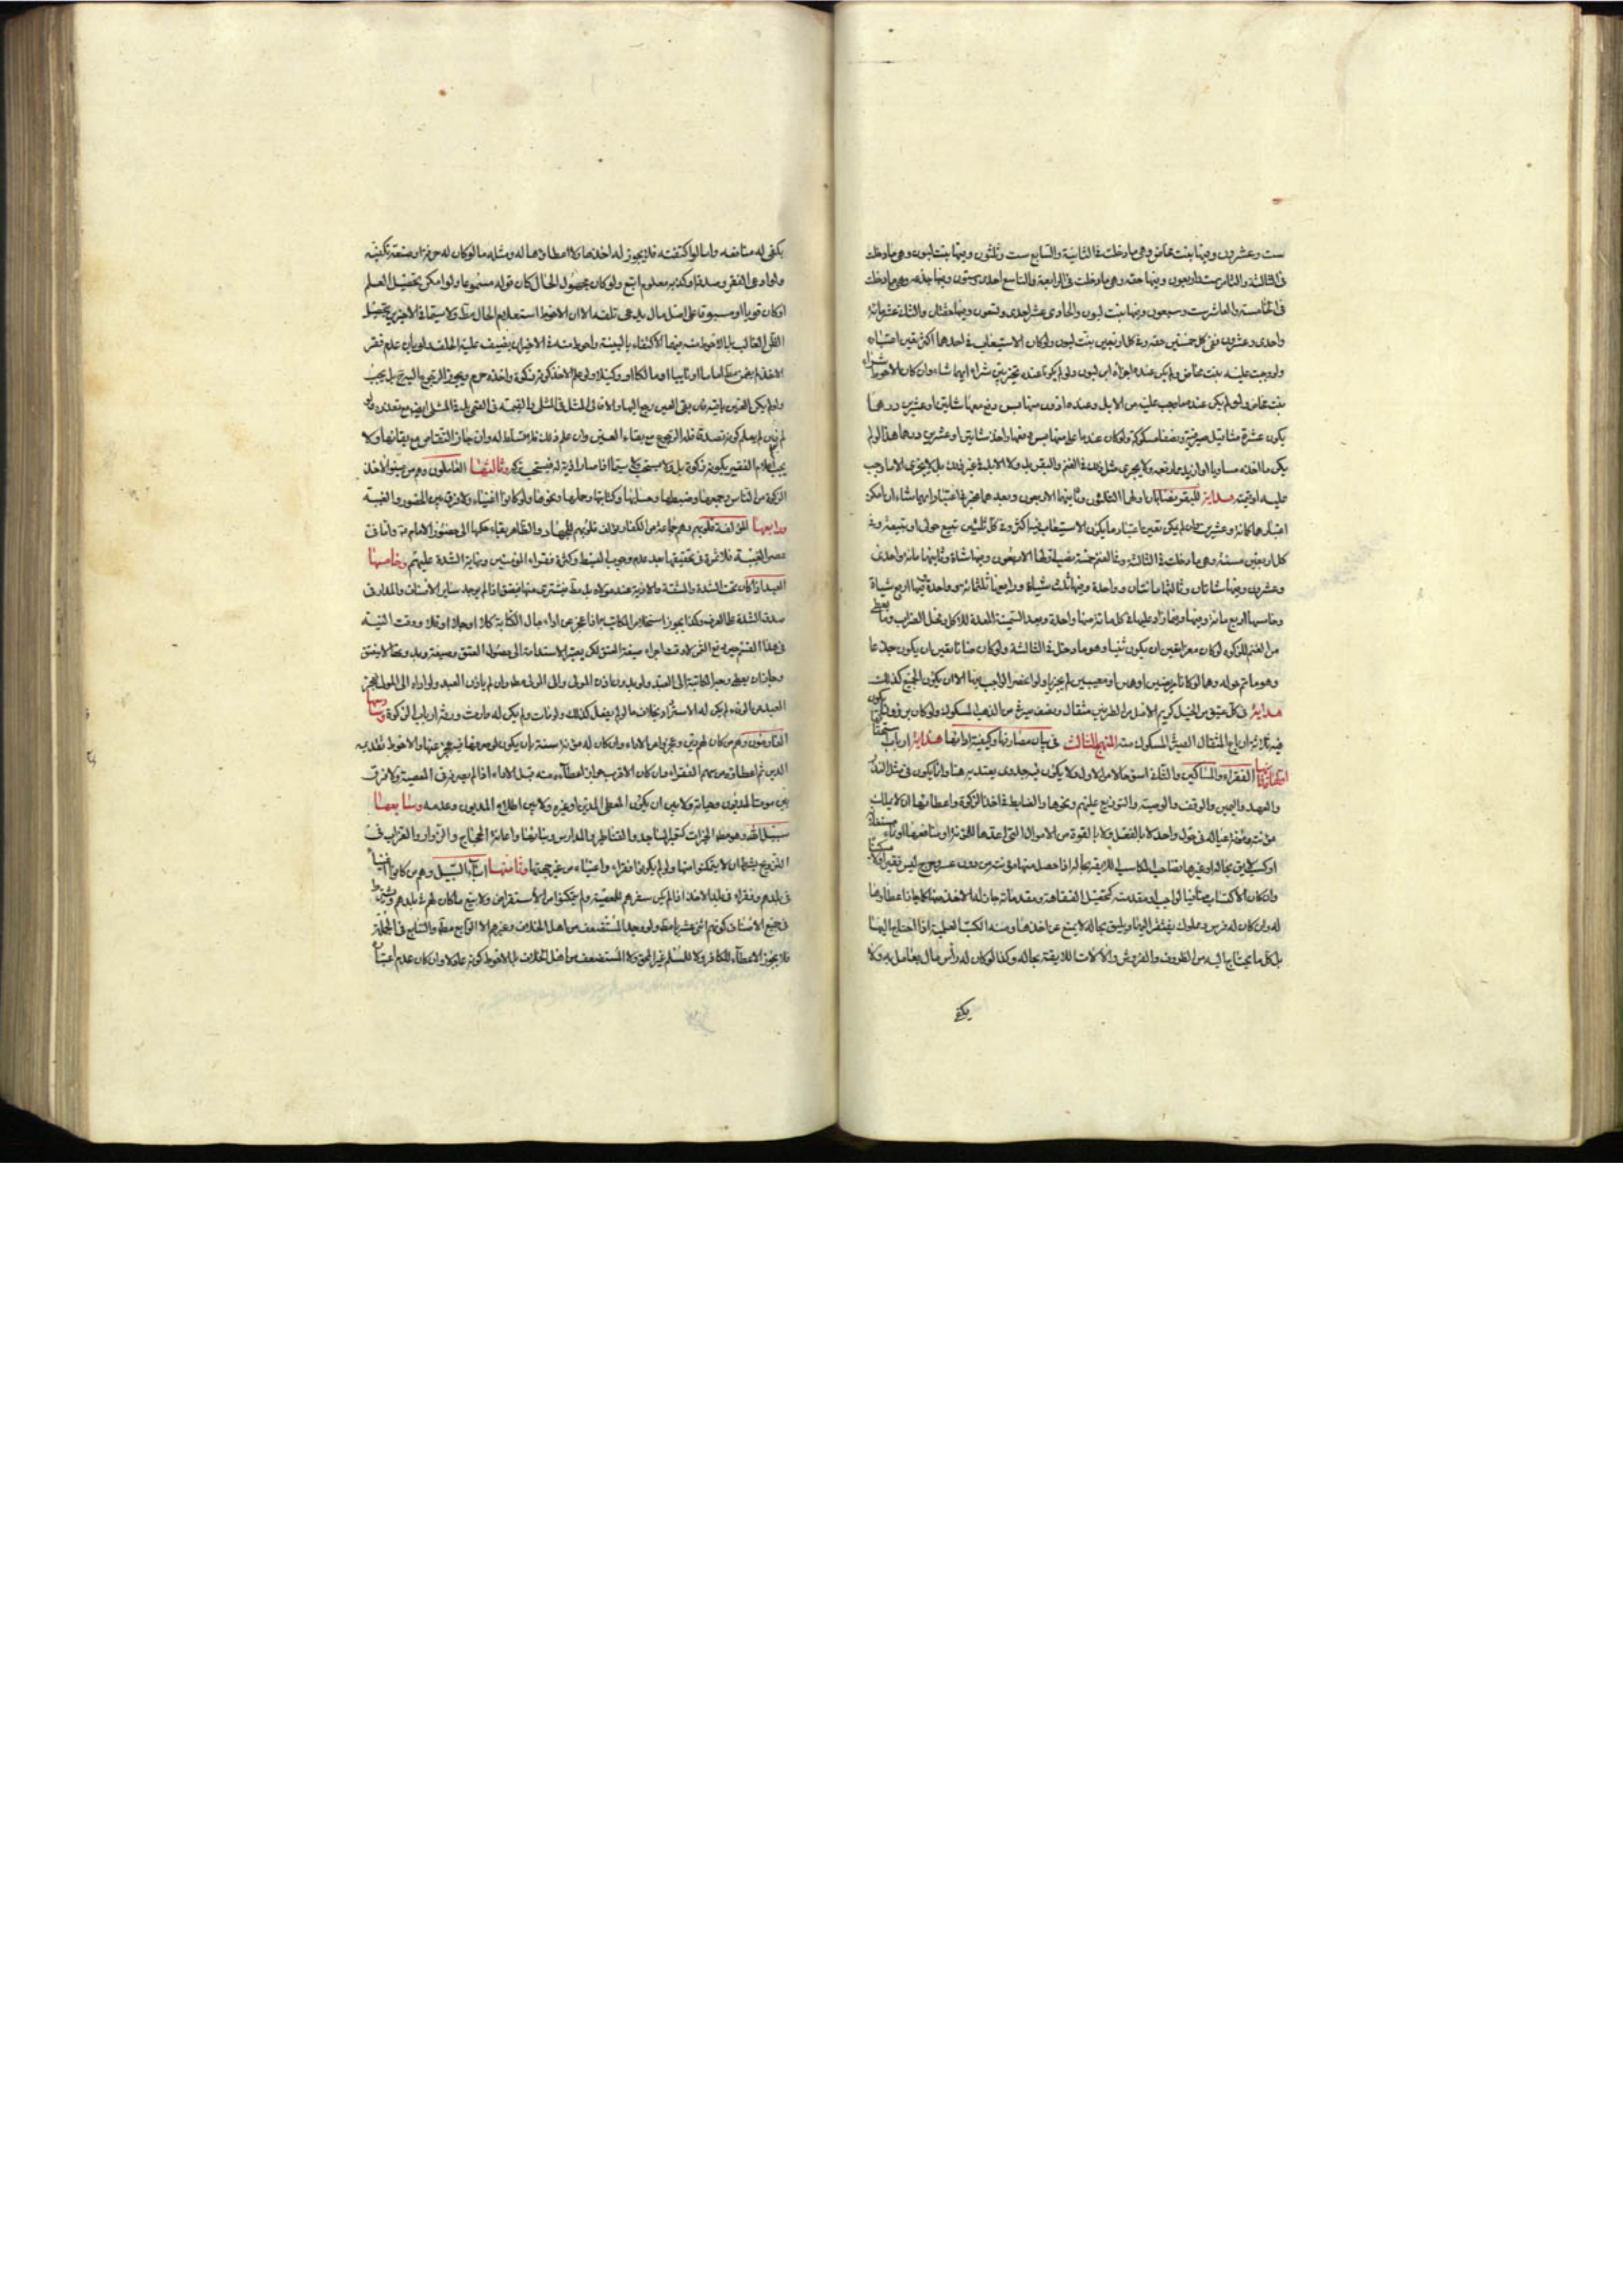 ست وعشرون وفيها بنت مخاض وهي ما دخلت في الثانية والسابع ست وثلثون وفيها بنت لبون وهي ما دخلت
في الثالثة والثامن ست واربعون وفيها حقه وهي ما دخلت في الرابعة والتاسع احدى وستون وفيها جذعه وهي ما دخلت
في الخامسة والعاشر ست وسبعون وفيها بنت لبون والحادي عشر احدى وتسعون وفيها حقتان والثاني عشر مائة
واحدى وعشرون ففي كل خمسين حقة وفي كل اربعين بنت لبون ولو كان الاستيعاب في احدهما اكثر تعين اعتباره
ولو وجبت عليه بنت مخاض ولم يكن عنده اجزأه ابن لبون ولو لم يكونا عنده تخير بين شراء ايهما شاء وان كان الاحوط شراء
بنت مخاض ولو لم يكن عنده ما يجب عليه من الابل وعنده ادون منها بسن دفع معها شاتين او عشرين درهما
يكون عشرة مثاقيل صيرفية ونصفا مسكوكة ولو كان عنده اعلى منها بسن دفعها واخذ شاتين او عشرين درهما هذا لو لم
يكن ما اخذه مساويا او ازيد مما دفعه ولا يجري مثل ذلك في الغنم والبقر بل ولا الابل في غير ذلك بل لا يجزي الا ما وجب
عليه او قيمته هداية للبقر نصابان اولهما الثلثون وثانيهما الاربعون وبعدهما يخير في اعتبار ايهما شاء ان امكن
اعتبارهما كمائة وعشرين فان لم يكن تعين اعتبار ما يكون الاستيعاب فيه اكثر وفي كل ثلثين تبيع حولي او تبيعة وفي
كل اربعين مسنة وهي ما دخلت في الثالثة وفي الغنم خمسة نصب اولها الاربعون وفيها شاة وثانيها مائة واحدى
وعشرون وفيها شاتان وثالثها مائتان وواحدة وفيها ثلث شياة ورابعها ثلثمائة وواحدة فيها اربع شياة
وخامسها اربع مائة وفيها وفيما زاد عليها في كل مائة منها واحدة وبعد السمينة المعدة للاكل وفحل الضراب وما يعطى
من الغنم للزكوة لو كان معزا تعين ان يكون ثنيا وهو ما دخل في الثالثة ولو كان ضانا تعين ان يكون جذعا
وهو ما تم حوله وهما لو كانا مريضين او هرمين او معيبين لم يجز اداء الواجب بهما الا ان يكون الجميع كذلك
هداية في كل عتيق من الخيل كريم الاصل من الطرفين مثقال ونصف صيرفي من الذهب المسكوك ولو كان برذونا يكون
فيه ثلاثة ارباع المثقال الصيرفي المسكوك منه المنهج الثالث في بيان مصارفها وكيفية ادائها هداية ارباب استحقاق
الزكوة ثمانية اولها وثانيها الفقراء والمساكين والثاني اسوء حالا من الاول ولا يكون فيه جدوى يعتد به هنا وانما يكون في مثل النذر
والعهد واليمين والوقف والوصية والتوزيع عليهم ونحوها والضابط في اخذ الزكوة واعطائها ان لا يملك
مؤنته ومؤنة عياله في حول واحد لا بالفعل ولا بالقوة من الاموال التي اعدها للمؤنة او منافعها او من صنعة
او كسب لايق بحاله او غيرها فصاحب المكاسب اللايقة بحاله اذا حصل منها مؤنته من دون عسر وحرج ليس فقيرا ولا مسكينا
وان كان الاكتساب منافيا لواجب او مقدمته كتحصيل الفقاهة ومقدماته جاز له الاخذ منها كما جاز اعطاؤها
له وان كان له فرس ومملوك يفتقر اليهما ويليق بحاله لا يمنع عن اخذها ومنه الكتب العلمية اذا احتاج اليها
بل كل ما يحتاج اليه من الظروف والفروش والالات اللايقة بحاله وكذا لو كان له رأس مال يعامل به ولا
يكفي
يكفي له منافعه واما لو اكتفت به فلا يجوز له اخذها ولا اعطاؤها له ومثله ما لو كان له حرفة او صنعة تكفيه
ولو ادعى الفقر وصدقه او كذبه معلوم اتبع ولو كان مجهول الحال كان قوله مسموعا ولو امكن تحصيل العلم
او كان قويا او مسبوقا على اصل مال يدعي تلفه الا ان الاحوط استعلام الحال مطلقا ولا سيما في الاخيرين بتحصيل
الظن الغالب بل الاحوط منه فيهما الاكتفاء بالبينة واحوط منه في الاخير ان يضيف عليه الحلف ولو بان عدم فقر
الاخذ لم يضمن معطيها اماما او نائبا او مالكا او وكيلا ولو علم الاخذ كونه زكوة واخذه حرم ويجوز الرجوع عليه بل يجب
ولو لم يكن العين باقية فان بقي العين رجع اليها والا فالى المثل في المثلي والقيمة في القيمي بل في المثل ايضا مع تعذره ولو
لم يعلم كونه صدقة فله الرجوع مع بقاء العين وان علم ذلك فلا تسلط له وان جاز التقاص مع بقائها ولا
يجب اعلام الفقير بكونه زكوة بل لا يستحب ولا سيما اذا صار اذية له فيستحب تركه وثالثها العاملون وهم من عينوا لاخذ
الزكوة من الناس وجمعها وضبطها وحسابها وكتابتها وحملها ونحوها ولو كانوا اغنياء ولا فرق بين الحضور والغيبة
ورابعها المؤلفة قلوبهم وهم جماعة من الكفار يؤلف قلوبهم للجهاد والظاهر بقاء حكمها الى حضور الامام ع واما في
عصر الغيبة فلا ثمرة في تحقيقها بعد عدم وجوب البسط وكثرة فقراء المؤمنين ونهاية الشدة عليهم وخامسها
العبيد اذا كان تحت الشدة والمشقة والاذية عند مولاه بل مطلقا فيشترى منها فيعتق اذا لم يوجد ساير الاصناف والمدار في
صدق الشدة على العرف وكذا يجوز استخلاص المكاتب اذا عجز عن اداء مال الكتابة كلا او بعضا ووقت النية
في هذا القسم حين دفع الثمن لا وقت اجراء صيغة العتق لكن يعتبر الاستدامة الى حصول العتق وصيغة وبدونها لا يعتق
وجاز ان يعطى وجه المكاتبة الى العبد ولو بدون اذن المولى والى المولى مطلقا وان لم ياذن العبد ولو اداه الى المولى فعجز
العبد عن الوفاء لم يكن له الاسترداد بخلاف ما لو لم يفعل كذلك ولو مات ولم يكن له وارث ورثه ارباب الزكوة وسادسها
الغارمون وهم من كان لهم دين وعجزوا عن الاداء وان كان له مؤنة سنة بان يكون لو صرفها فيه عجز عنها والاحوط تقديم
الدين ثم اعطاؤه من سهم الفقراء وان كان الاقرب جواز اعطائه منه قبل الاداء اذا لم يصرف في المعصية ولا فرق
بين موت المديون وحياته ولا بين ان يكون المعطي الدين او غيره ولا بين اطلاع المديون وعدمه وسابعها
سبيل الله وهو مطلق الخيرات كتعمير المساجد والقناطر والمدارس وبنائها واعانة الحجاج والزوار والعزاب في
التزويج بشرط ان لا يتمكنوا منها ولو لم يكونوا فقراء واغنياء من غير جهتها وثامنها ابناء السبيل وهم من كانوا اغنياء
في بلدهم وفقراء في بلد الاخذ اذا لم يكن سفرهم للمعصية ولم يتمكنوا من الاستقراض ولا بيع ما كان لهم في بلدهم ويشترط
في جميع الاصناف كونهم اثني عشرية مطلقا ولو وجد المستضعف من اهل الخلاف وغيرهم الا الرابع مطلقا والسابع في الجملة
فلا يجوز الاعطاء للكافر ولا للمسلم غير المحق ولا المستضعف من اهل الخلاف بل الاحوط كونه عادلا وان كان عدم اعتبار